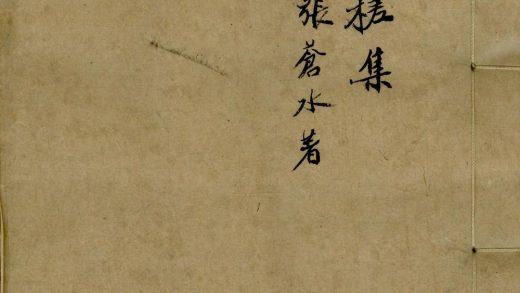 槎集
張蒼水着